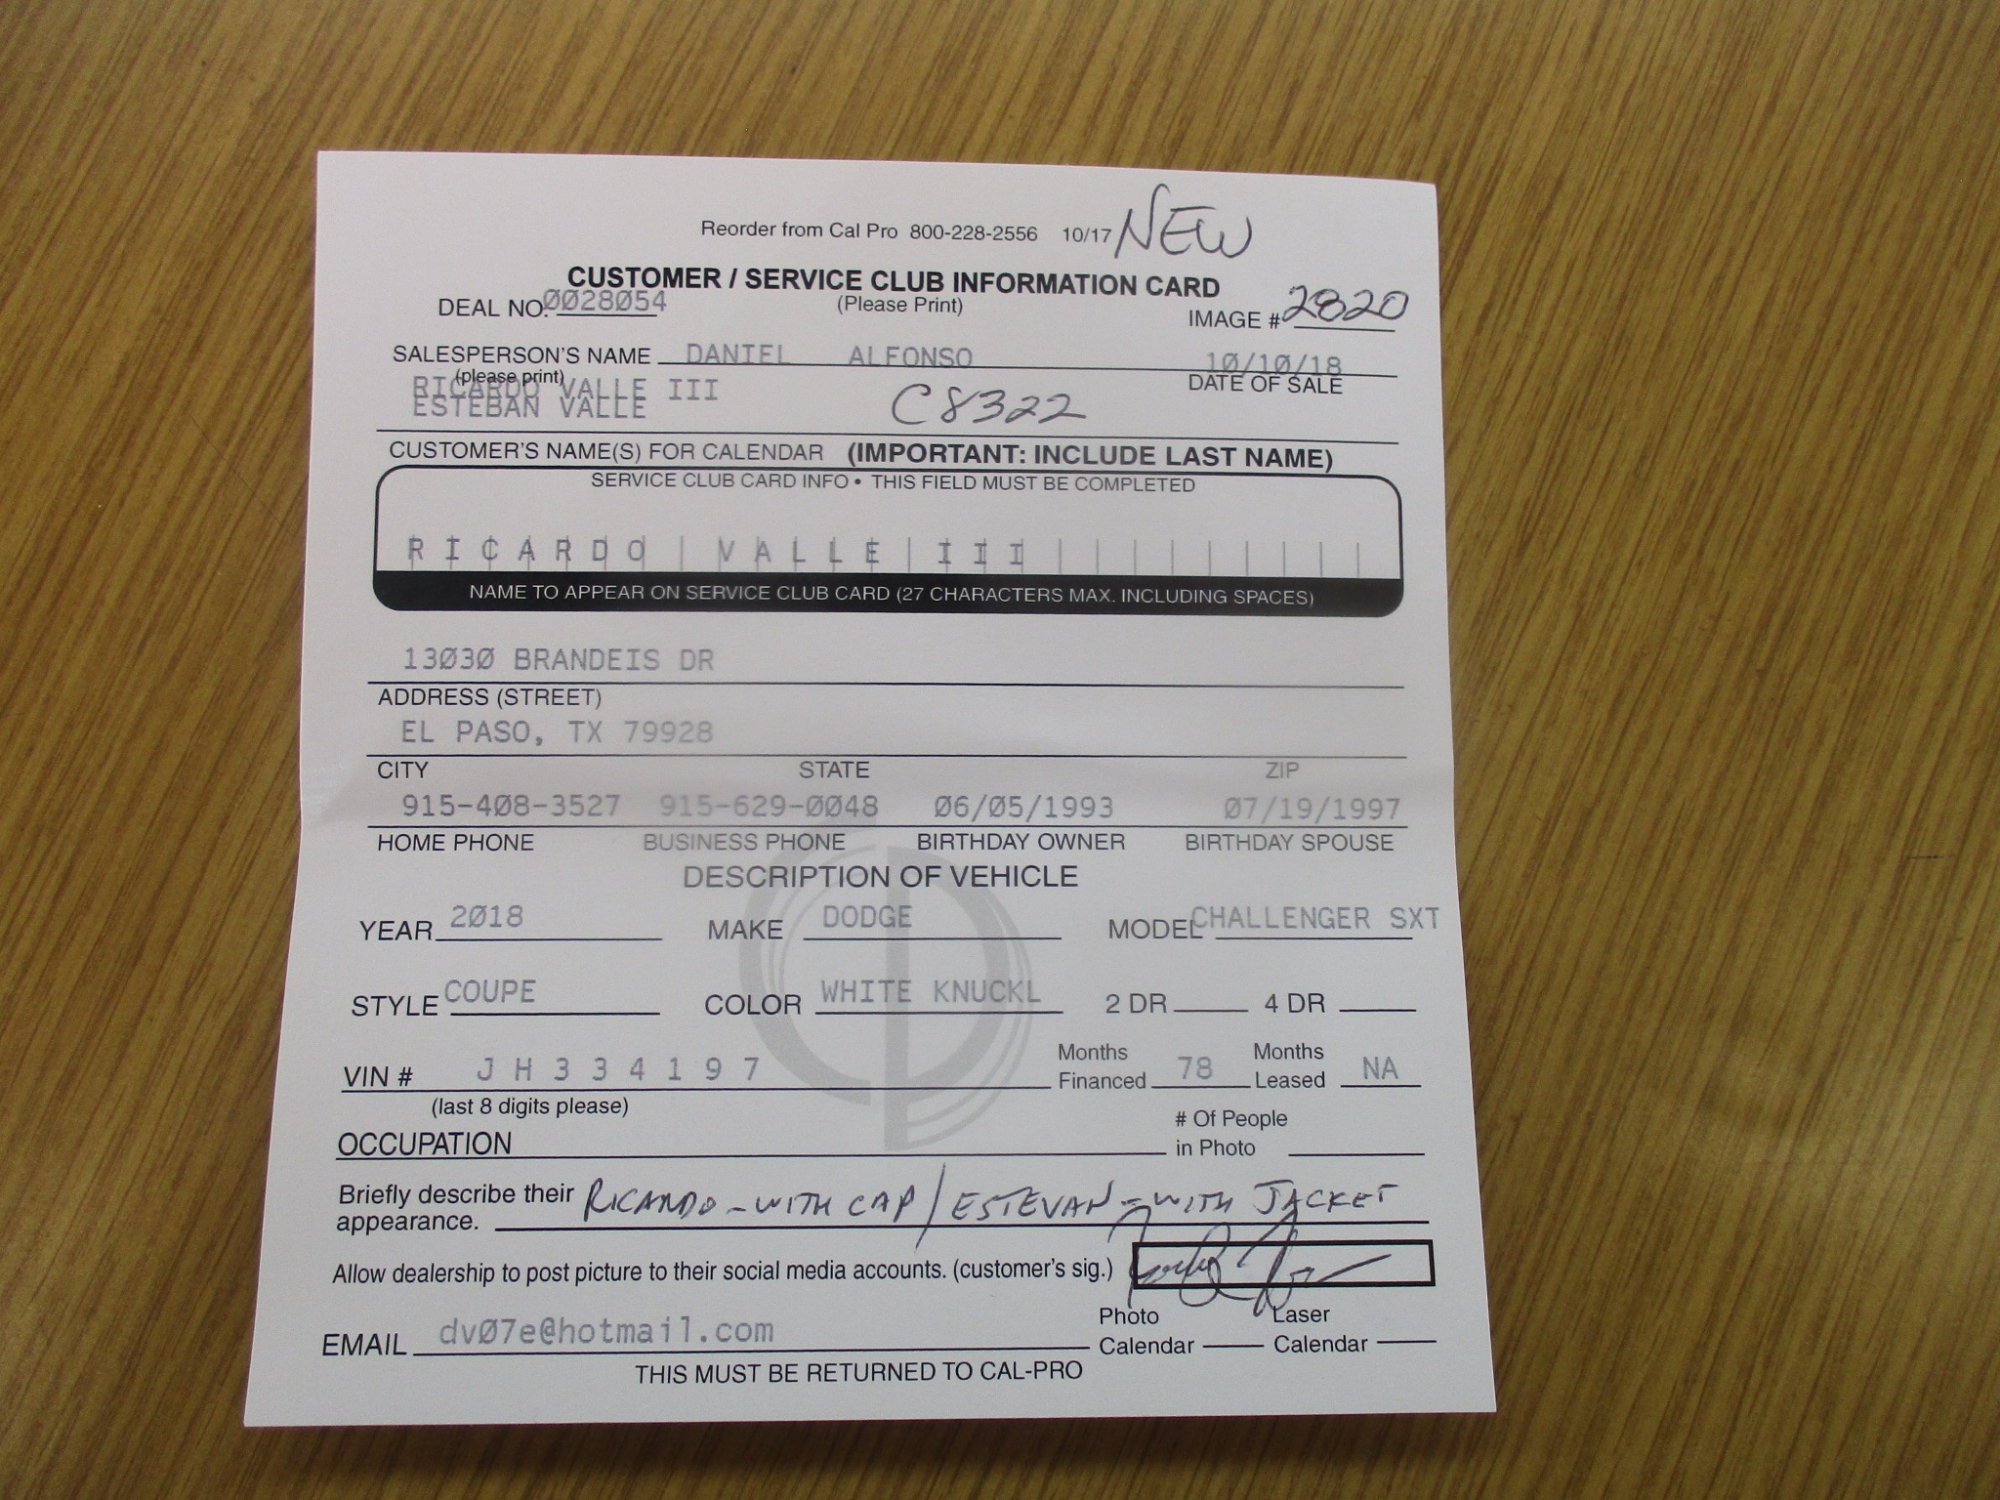 Reorder from Cal Pro 800-228-2556 10/17 NEW
CUSTOMER / SERVICE CLUB INFORMATION CARD
DEAL NO. 0028054 (Please Print) IMAGE # 2820
SALESPERSON'S NAME DANIEL ALFONSO 10/10/18
(please print) DATE OF SALE
RICARDO VALLE III
ESTEBAN VALLE C8322
CUSTOMER'S NAME(S) FOR CALENDAR (IMPORTANT: INCLUDE LAST NAME)
SERVICE CLUB CARD INFO • THIS FIELD MUST BE COMPLETED
RICARDO VALLE III
NAME TO APPEAR ON SERVICE CLUB CARD (27 CHARACTERS MAX. INCLUDING SPACES)
13030 BRANDEIS DR
ADDRESS (STREET)
EL PASO, TX 79928
CITY STATE ZIP
915-408-3527 915-629-0048 06/05/1993 07/19/1997
HOME PHONE BUSINESS PHONE BIRTHDAY OWNER BIRTHDAY SPOUSE
DESCRIPTION OF VEHICLE
YEAR 2018 MAKE DODGE MODEL CHALLENGER SXT
STYLE COUPE COLOR WHITE KNUCKL 2 DR 4 DR
VIN # JH334197 Months Financed 78 Months Leased NA
(last 8 digits please)
OCCUPATION # Of People in Photo
Briefly describe their appearance. RICARDO - WITH CAP / ESTEVAN - WITH JACKET
Allow dealership to post picture to their social media accounts. (customer's sig.)
EMAIL dv07e@hotmail.com Photo Calendar Laser Calendar
THIS MUST BE RETURNED TO CAL-PRO